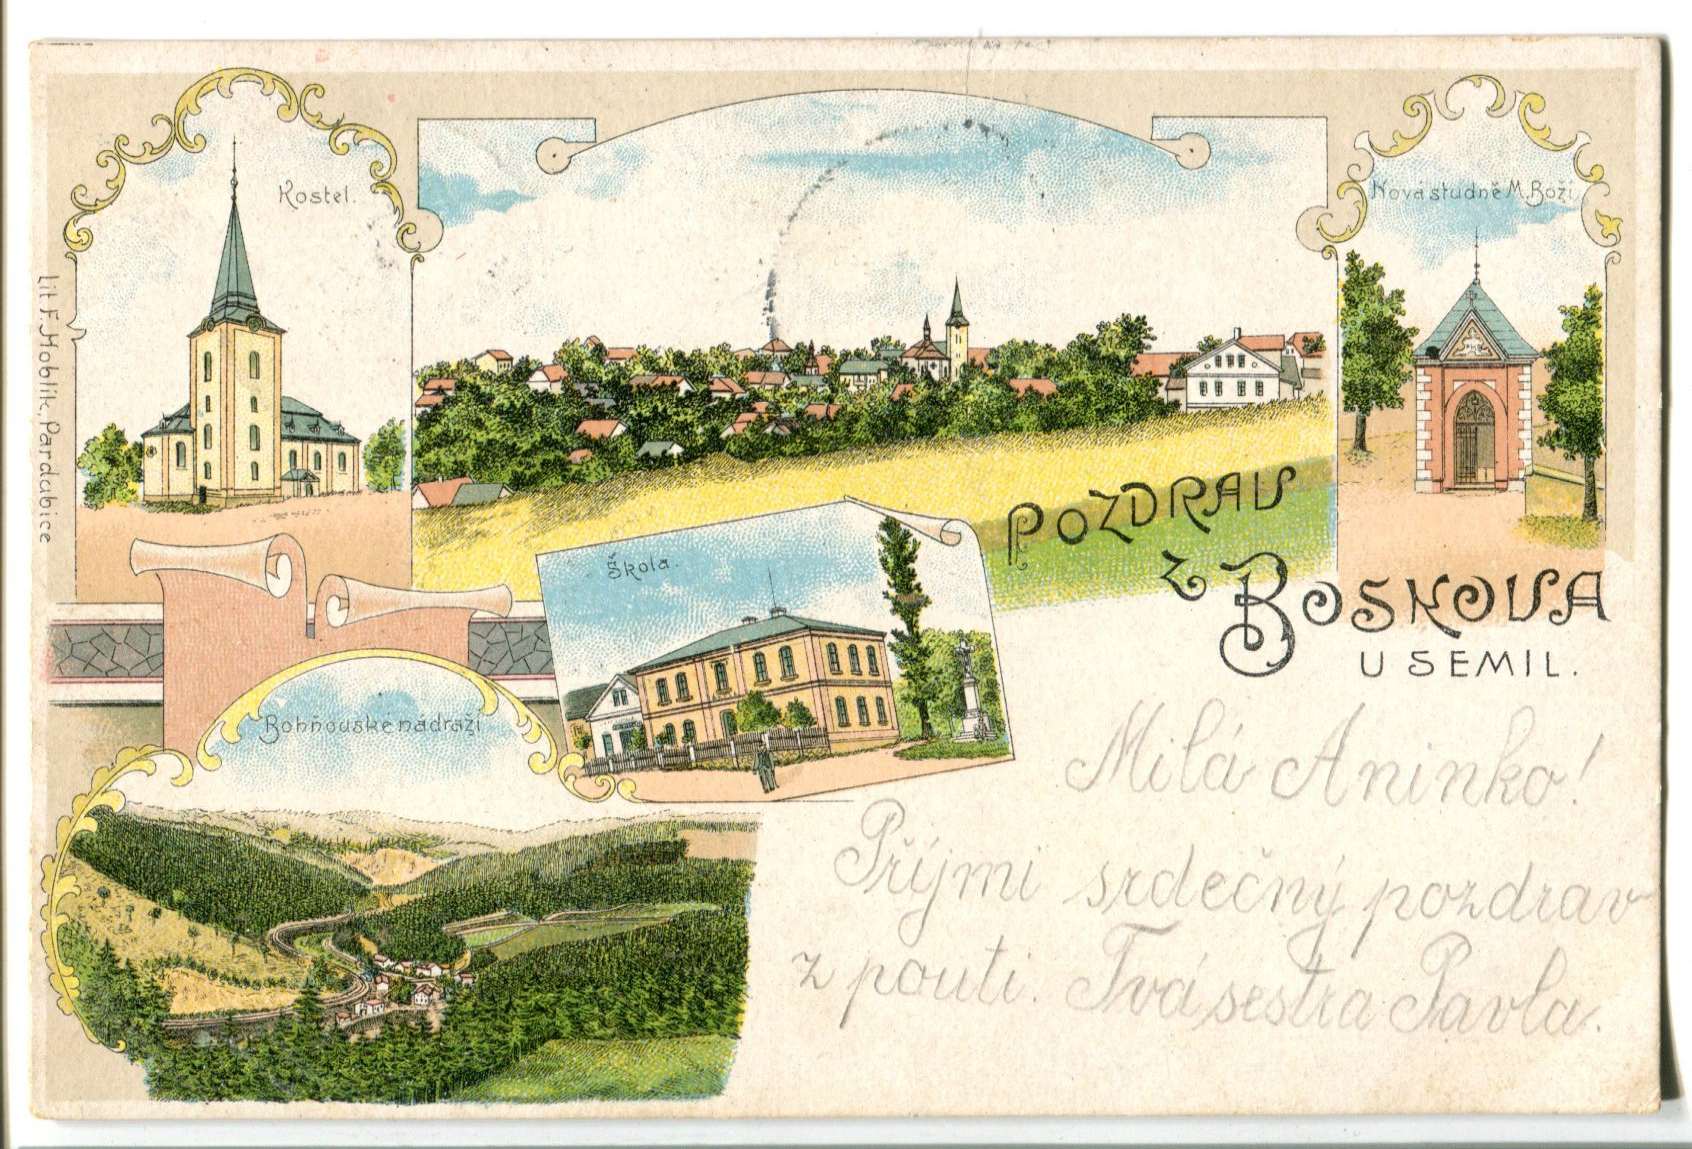 Kostel.
Nová studně M. Boží
Lit F. Hoblík, Pardubice
Škola.
POZDRAV
Z BOSKOVA
U SEMIL.
Bohňouské nádraží
Milá Aninko!
Příjmi srdečný pozdrav
z pouti. Tvá sestra Pavla.